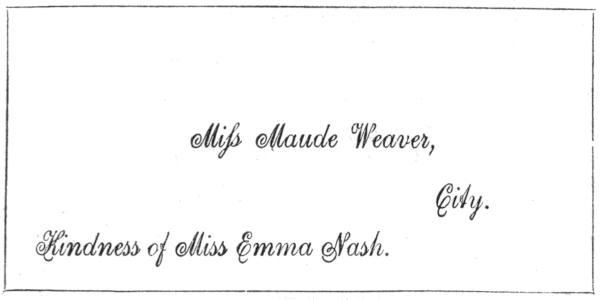 Miſs Maude Weaver,
City.
Kindness of Miss Emma Nash.